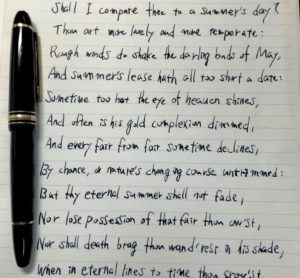 Shall I compare thee to a summer's day?
Thou art more lovely and more temperate:
Rough winds do shake the darling buds of May,
And summer's lease hath all too short a date:
Sometime too hot the eye of heaven shines,
And often is his gold complexion dimmed,
And every fair from fair sometime declines,
By chance, or nature's changing course untrimmed:
But thy eternal summer shall not fade,
Nor lose possession of that fair thou ow'st,
Nor shall death brag thou wand'rest in his shade,
When in eternal lines to time thou grow'st